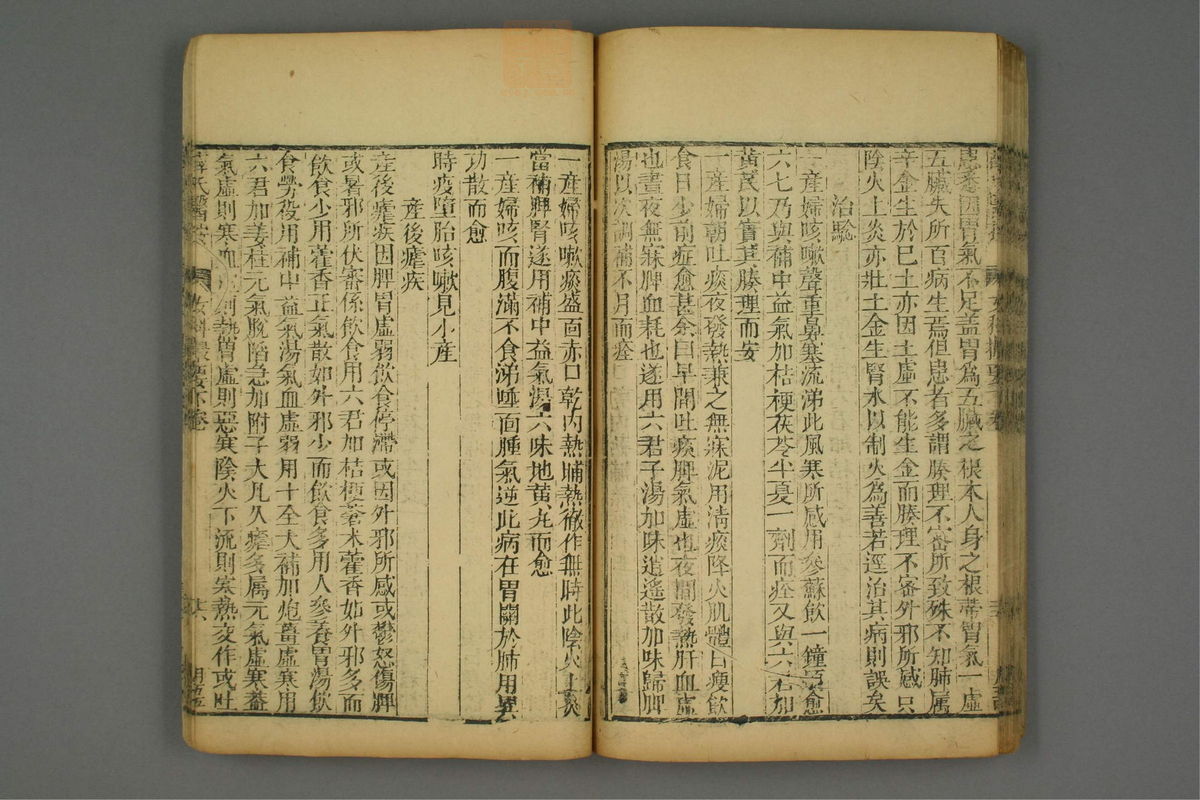 虛蓋因胃氣不足盖胃爲五臟之根本人身之根蒂胃氣一虛
五臟失所百病生焉但患者多謂腠理不密所致殊不知肺属
辛金生於己土亦因土虛不能生金而腠理不密外邪所感只
陰火上炎亦壯土金生腎水以制火爲善若逕治其病則誤矣
治驗
一産婦咳嗽聲重鼻塞流涕此風寒所感用參蘇飲一鐘頓愈
六七乃與補中益氣加桔梗茯苓半夏一劑而痊又與六君加
黃芪以實其腠理而安
一産婦朝吐痰夜發熱兼之無寐泥用清痰降火肌體日瘦飲
食日少前症愈甚余曰早間吐痰脾氣虛也夜間發熱肝血虛
也晝夜無寐脾血耗也遂用六君子湯加味逍遙散加味歸脾
湯以次調補不月而痊
一産婦咳嗽痰盛面赤口乾内熱晡熱徹作無時此陰火上炎
當補脾腎遂用補中益氣湯六味地黄丸而愈
一産婦咳而腹滿不食涕唾面腫氣逆此病在胃關於肺用異
功散而愈
時疫墮胎咳嗽見小産
産後瘧疾
産後瘧疾因脾胃虛弱飲食停滯或因外邪所感或鬱怒傷脾
或暑邪所伏審係飲食用六君加桔梗蒼木藿香如外邪多而
飲食少用藿香正氣散如外邪少而飲食多用人參養胃湯飲
食勞役用補中益氣湯氣血虛弱用十全大補加炮薑虛寒用
六君加姜桂元氣脫陷急加附子大凡久瘧多属元氣虛寒葢
氣虛則寒血則熱胃虛則惡寒陰火下流則寒熱交作或吐